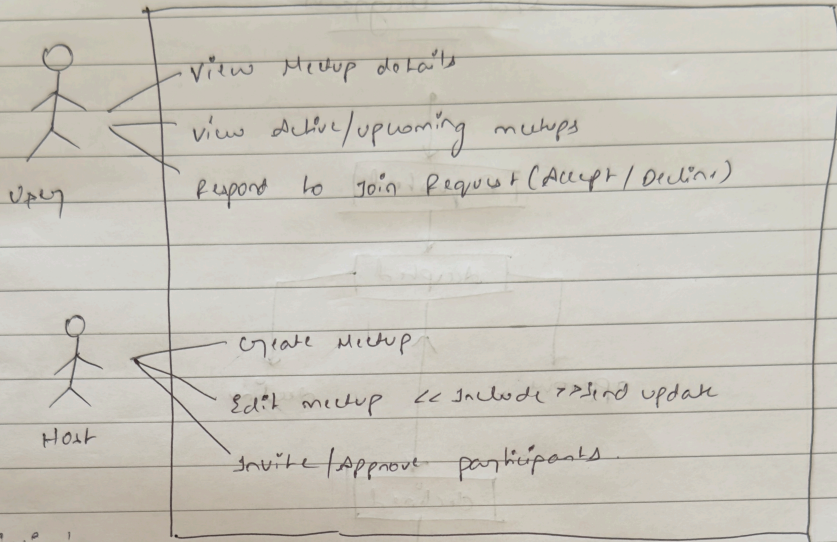 View Meetup details
View Active/upcoming meetups
User
Respond to Join Request (Accept/Decline)
Create Meetup
Edit meetup << Include >> Send update
Host
Invite/Approve participants.